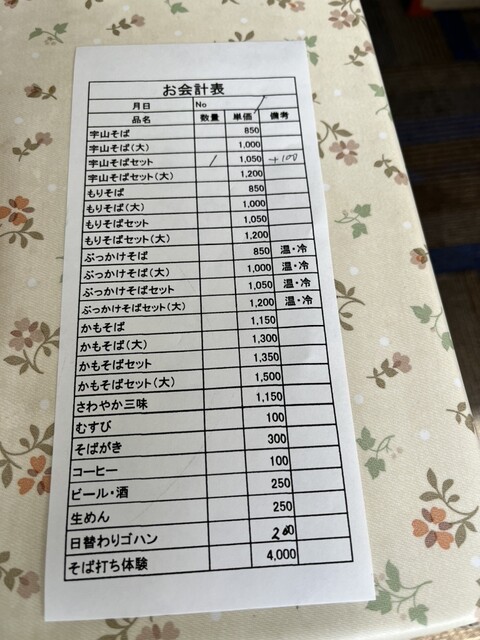 お会計表
月日 No /
品名 数量 単価 備考
宇山そば 850
宇山そば(大) 1,000
宇山そばセット / 1,050 +100
宇山そばセット(大) 1,200
もりそば 850
もりそば(大) 1,000
もりそばセット 1,050
もりそばセット(大) 1,200
ぶっかけそば 850 温・冷
ぶっかけそば(大) 1,000 温・冷
ぶっかけそばセット 1,050 温・冷
ぶっかけそばセット(大) 1,200 温・冷
かもそば 1,150
かもそば(大) 1,300
かもそばセット 1,350
かもそばセット(大) 1,500
さわやか三味 1,150
むすび 100
そばがき 300
コーヒー 100
ビール・酒 250
生めん 250
日替わりゴハン 200
そば打ち体験 4,000